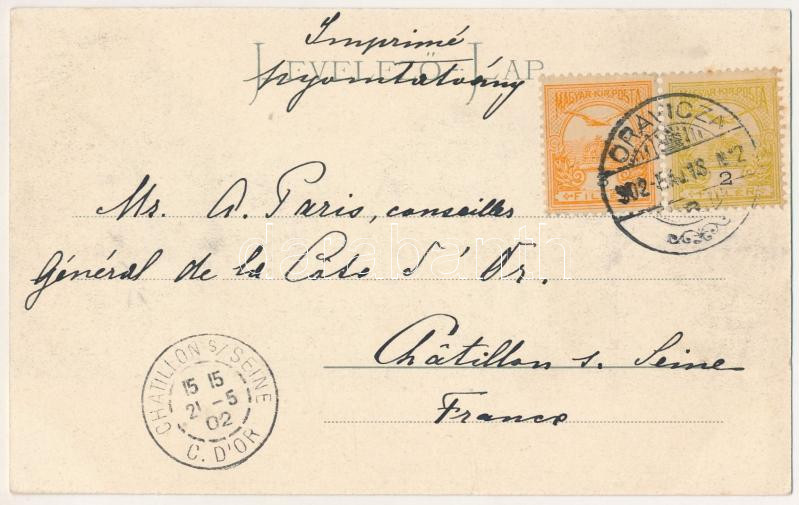 Imprimé
LEVELEZŐ-LAP
Nyomtatvány
MAGYAR·KIR·POSTA MAGYAR·KIR·POSTA
ORAVICZA
902
2
Mr. A. Paris, conseiller
Général de la Côte d'Or.
Châtillon s. Seine
France
CHATILLON S/ SEINE
15 15
21 -5
02
C. D'OR
databanth